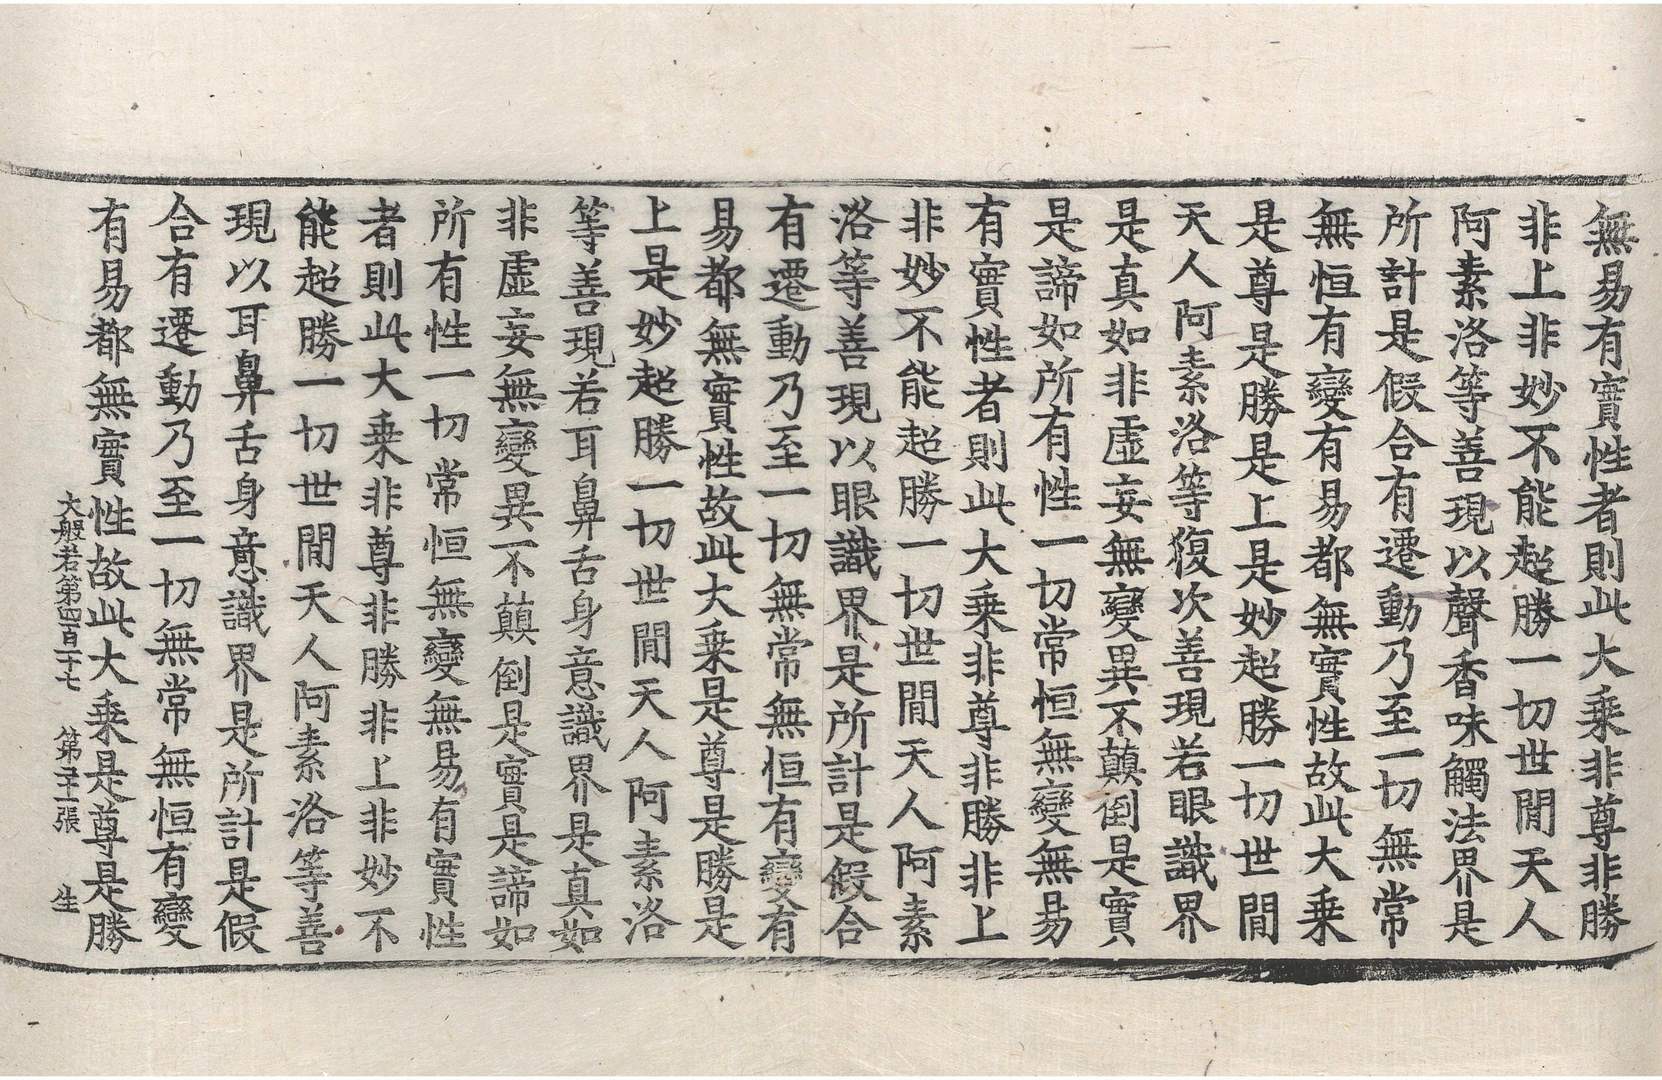 無易有實性者則此大乘非尊非勝
非上非妙不能超勝一切世閒天人
阿素洛等善現以聲香味觸法界是
所計是假合有遷動乃至一切無常
無恒有變有易都無實性故此大乘
是尊是勝是上是妙超勝一切世閒
天人阿素洛等復次善現若眼識界
是真如非虛妄無變異不顛倒是實
是諦如所有性一切常恒無變無易
有實性者則此大乘非尊非勝非上
非妙不能超勝一切世閒天人阿素
洛等善現以眼識界是所計是假合
有遷動乃至一切無常無恒有變有
易都無實性故此大乘是尊是勝是
上是妙超勝一切世閒天人阿素洛
等善現若耳鼻舌身意識界是真如
非虛妄無變異不顛倒是實是諦如
所有性一切常恒無變無易有實性
者則此大乘非尊非勝非上非妙不
能超勝一切世閒天人阿素洛等善
現以耳鼻舌身意識界是所計是假
合有遷動乃至一切無常無恒有變
有易都無實性故此大乘是尊是勝
大般若第四百一十七 第二十一張 生